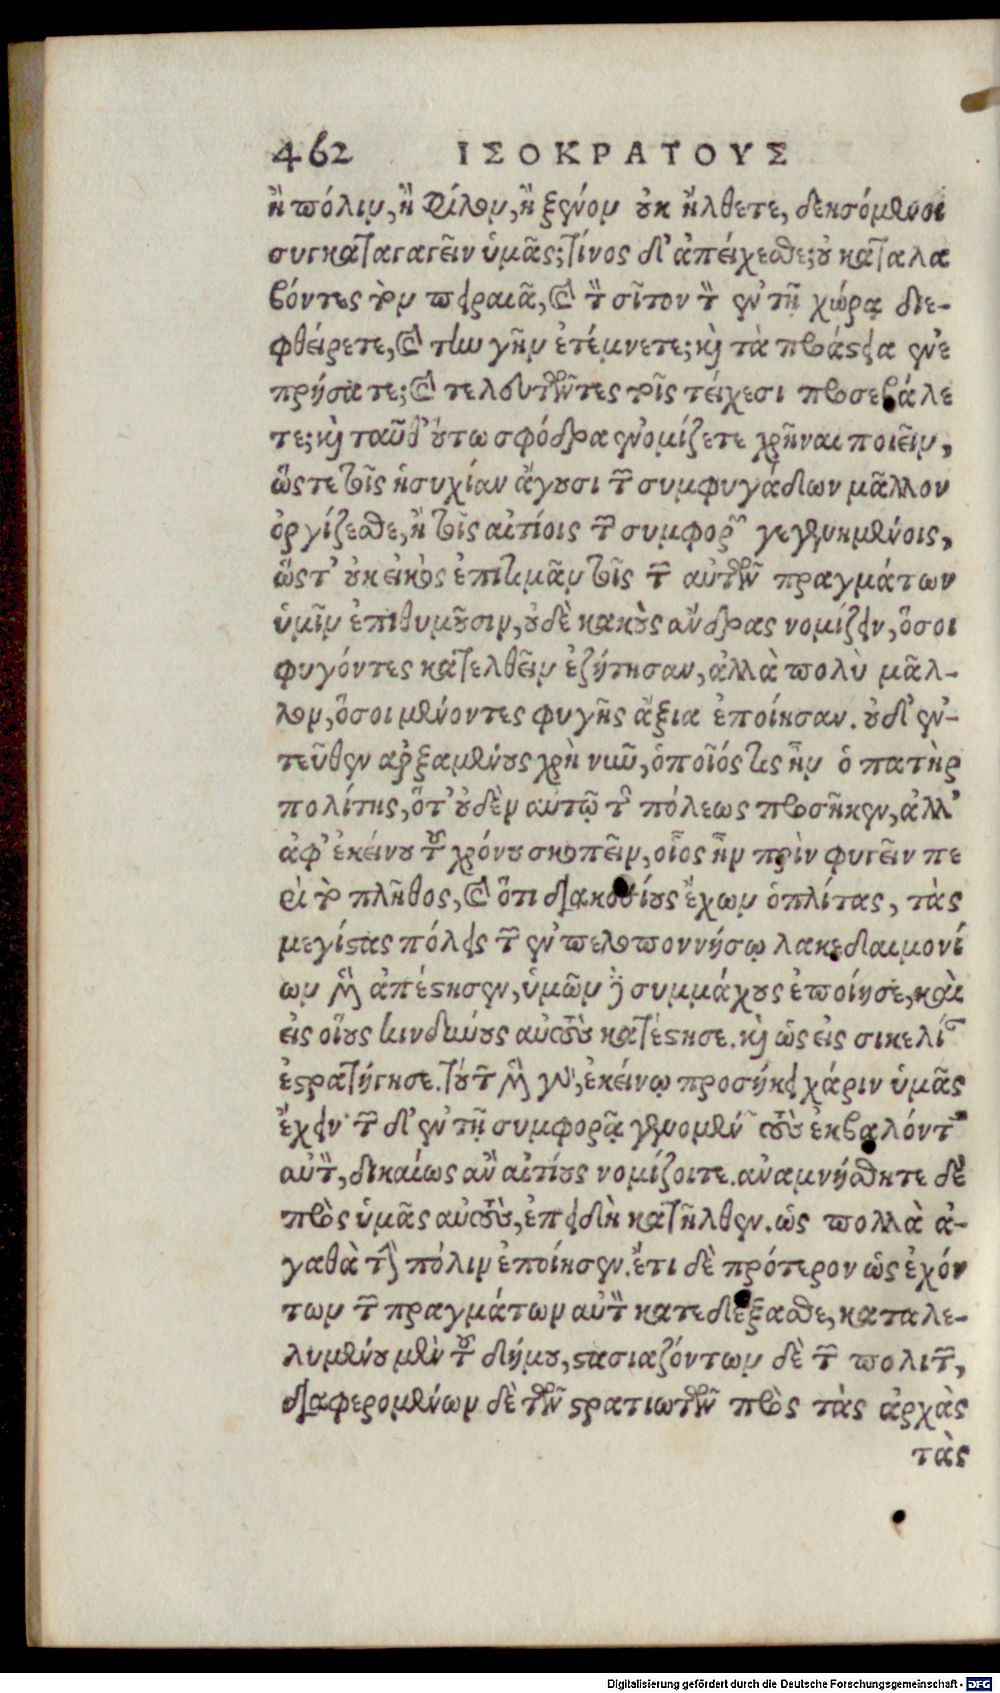 462 ΙΣΟΚΡΑΤΟΥΣ
ἢ πόλιν, ἢ φίλον, ἢ ξένον οὐκ ἤλθετε, δεησόμενοι
συγκαταγαγεῖν ὑμᾶς; τίνος δ' ἀπείχεσθε; οὐ καταλα
βόντες τὸν πειραιᾶ, καὶ τὸν σῖτον τὸν ἐν τῇ χώρᾳ διε-
φθείρετε, καὶ τὴν γῆν ἐτέμνετε; καὶ τὰ προάστεια ἐνε
πρήσατε; καὶ τελευτῶντες τοῖς τείχεσι προσεβάλε
τε; καὶ ταῦθ' οὕτω σφόδρα ἐνομίζετε χρῆναι ποιεῖν,
ὥστε τοῖς ἡσυχίαν ἄγουσι τῶν συμφυγάδων μᾶλλον
ὀργίζεσθε, ἢ τοῖς αἰτίοις τῶν συμφορῶν γεγενημένοις,
ὥστ' οὐκ εἰκὸς ἐπιτιμᾶν τοῖς τῶν αὐτῶν πραγμάτων
ὑμῖν ἐπιθυμοῦσιν, οὐδὲ κακοὺς ἄνδρας νομίζειν, ὅσοι
φυγόντες κατελθεῖν ἐζήτησαν, ἀλλὰ πολὺ μᾶλ-
λον, ὅσοι μένοντες φυγῆς ἄξια ἐποίησαν. οὐδ' ἐν-
τεῦθεν ἀρξαμένους χρὴ νῦν, ὁποῖός τις ἦν ὁ πατὴρ
πολίτης, ὅτ' οὐδὲν αὐτῷ τῆς πόλεως προσῆκεν, ἀλλ'
ἀφ' ἐκείνου τοῦ χρόνου σκοπεῖν, οἷος ἦν πρὶν φυγεῖν πε
ρὶ τὸ πλῆθος, καὶ ὅτι διακοσίους ἔχων ὁπλίτας, τὰς
μεγίστας πόλεις τῶν ἐν πελοποννήσῳ λακεδαιμονί
ων μὲν ἀπέστησεν, ὑμῶν δὲ συμμάχους ἐποίησε, καὶ
εἰς οἵους κινδύνους αὐτοὺς κατέστησε. καὶ ὡς εἰς σικελίαν
ἐστρατήγησε. τούτων μὲν γὰρ, ἐκείνῳ προσήκει χάριν ὑμᾶς
ἔχειν· τῶν δ' ἐν τῇ συμφορᾷ γενομένων τοὺς ἐκβαλόντας
αὐτὸν, δικαίως ἂν αἰτίους νομίζοιτε. ἀναμνήσθητε δὲ
πρὸς ὑμᾶς αὐτοὺς, ἐπειδὴ κατῆλθεν. ὡς πολλὰ ἀ-
γαθὰ τὴν πόλιν ἐποίησεν. ἔτι δὲ πρότερον ὡς ἐχόν
των τῶν πραγμάτων αὐτὸν κατεδέξασθε, καταλε-
λυμένου μὲν τοῦ δήμου, στασιαζόντων δὲ τῶν πολιτῶν,
διαφερομένων δὲ τῶν στρατιωτῶν πρὸς τὰς ἀρχὰς
τὰς
Digitalisierung gefördert durch die Deutsche Forschungsgemeinschaft - DFG